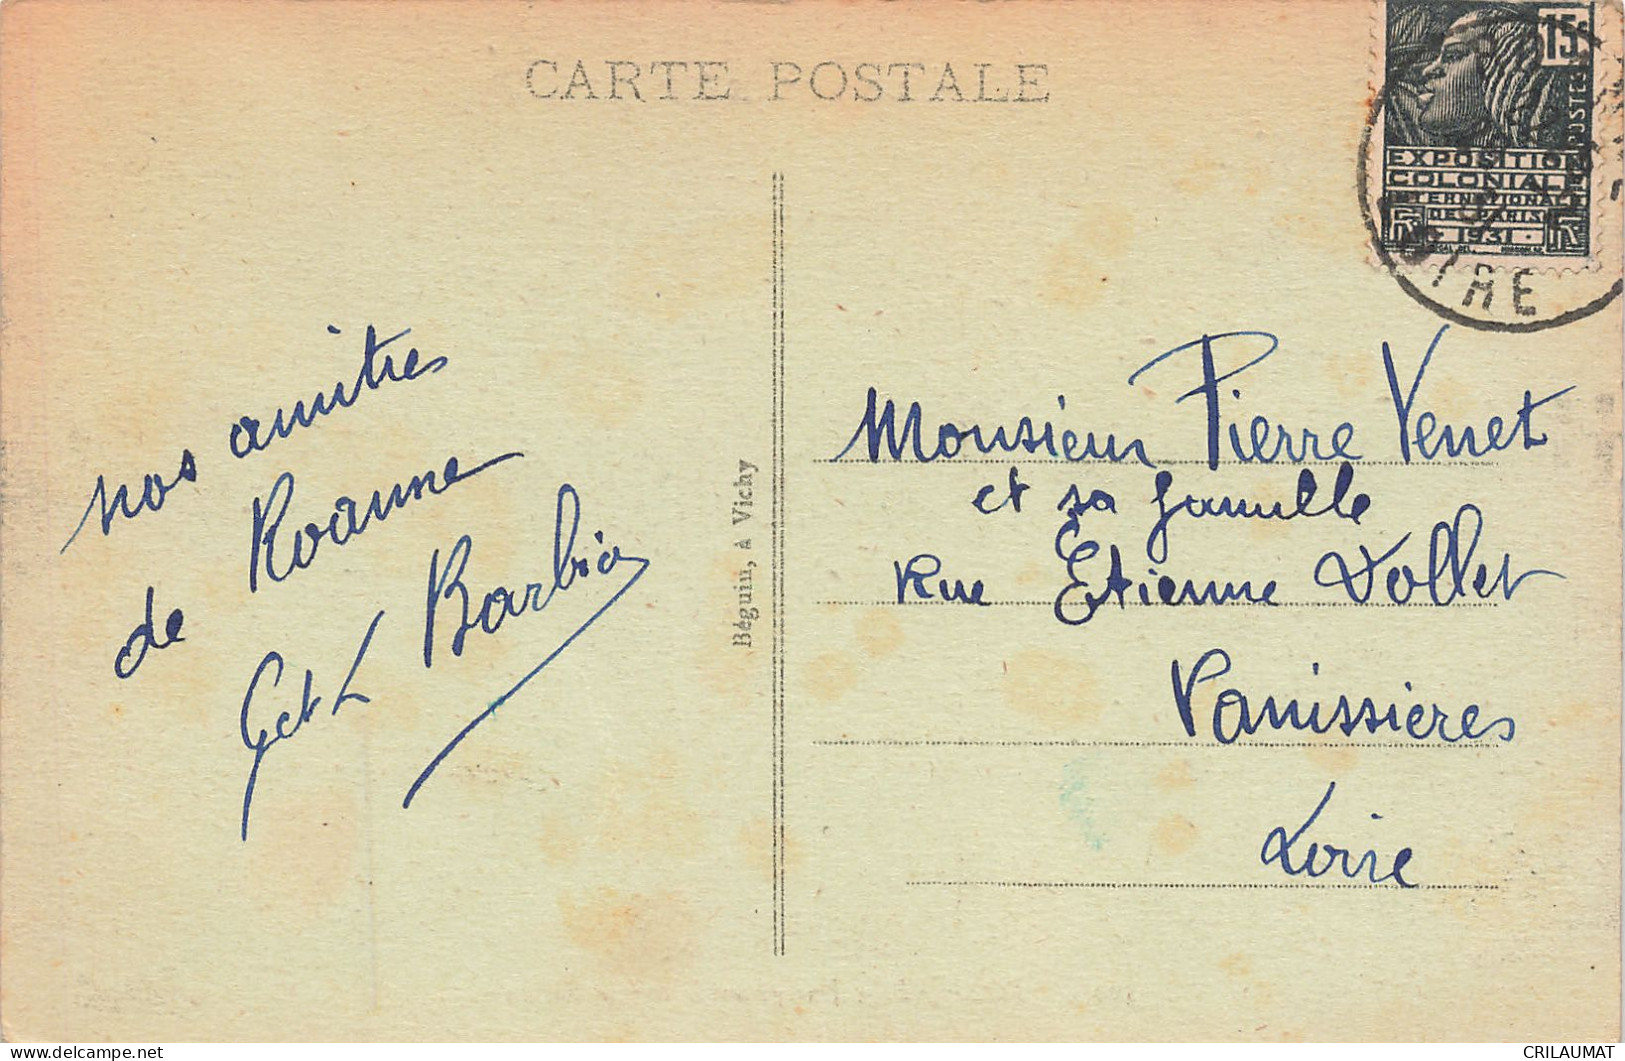 CARTE POSTALE
15c
POSTES
EXPOSITION
COLONIALE
INTERNATIONALE
DE PARIS
1931
LOIRE
nos amitiés
de Roanne
G et L
Béguin, à Vichy
Monsieur Pierre Venet
et sa famille
Rue Etienne Dollet
Panissières
Loire
delcampe.net
CRILAUMAT